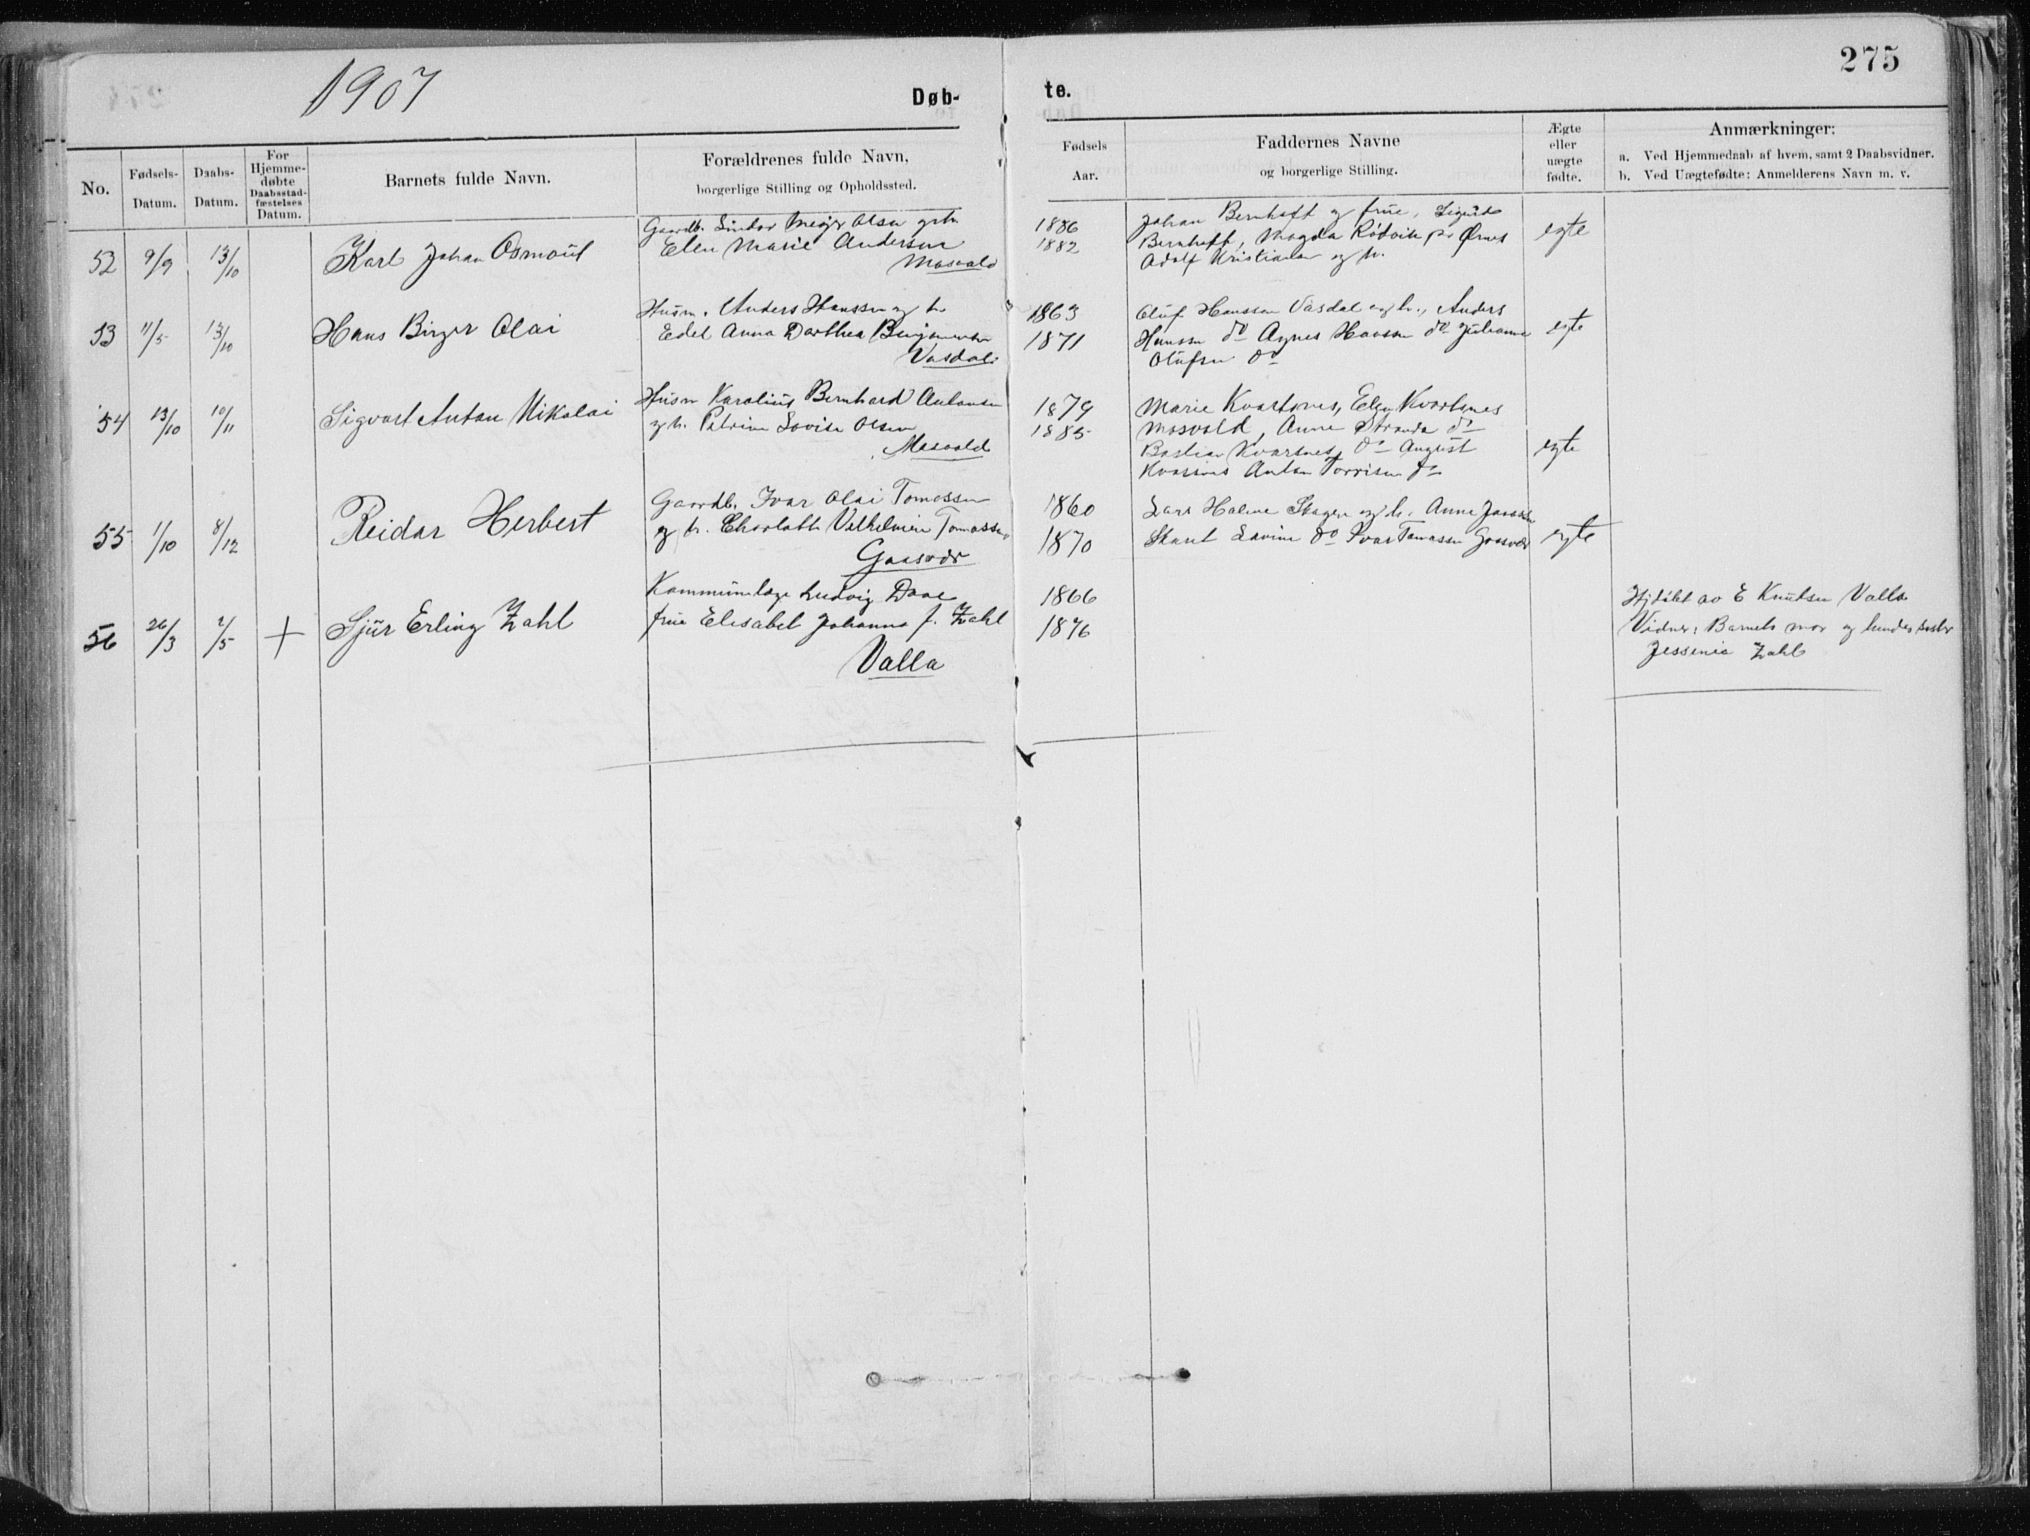 275
1907
Døb-
te.
No.
Fødsels-
Datum.
Daabs-
Datum.
For
Hjemme-
døbte
Daabsstad-
fæstelses
Datum.
Barnets fulde Navn.
Forældrenes fulde Navn,
borgerlige Stilling og Opholdssted.
Fødsels
Aar.
Faddernes Navne
og borgerlige Stilling.
Ægte
eller
uægte
fødte.
Anmærkninger:
a. Ved Hjemmedaab af hvem, samt 2 Daabsvidner.
b. Ved Uægtefødte: Anmelderens Navn m. v.
52 9/9 13/10 Karl Johan Osmout
Gaardb. Sindor Meyer Olsen
Elen Marie Andersen
Mosvold
1886
1882
Johan Bernhoft og frue, Sigurd
Bernhoft, Magda Rödvik pr Ørnes
Adolf Kristiansen og h.
egte
53 11/5 13/10 Hans Birger Olai
Husm. Anders Hanssen og h.
Edel Anna Dorthea Benjaminsen
Vasdal
1863
1871
Oluf Hanssen Vasdal og h., Anders
Hanssen do Agnes Hanssen do Julianne
Olufsen do
egte
54 13/10 10/11 Sigvart Antan Nikolai
Husm Karolius Bernhard Antonsen
og h. Petrine Lovise Olsen
Mosvold
1879
1885
Marie Kvarsnes, Elen Kvarsnes
Mosvold, Anne Stranda do
Bastian Kvarsnes, do August
Kvarsnes Anton Torrisen do
egte
55 1/10 8/12 Reidar Herbert
Gaardb. Ivar Olai Tomassen
og h. Charlotte Vilhelmine Tomassen
Gaasvær
1860
1870
Lars Holme Skagen og h. Anne
Lavine do Ivar Tomassen Gaasvær
egte
56 26/3 2/5 + Sjur Erling Zahl
Kommunelæge Ludvig Daae
frue Elisabet Johanna f. Zahl
Valla
1866
1876
Hjdöbt av E Knudsen Valla
Vidner: Barnets mor og hendes søster
Jessenia Zahl